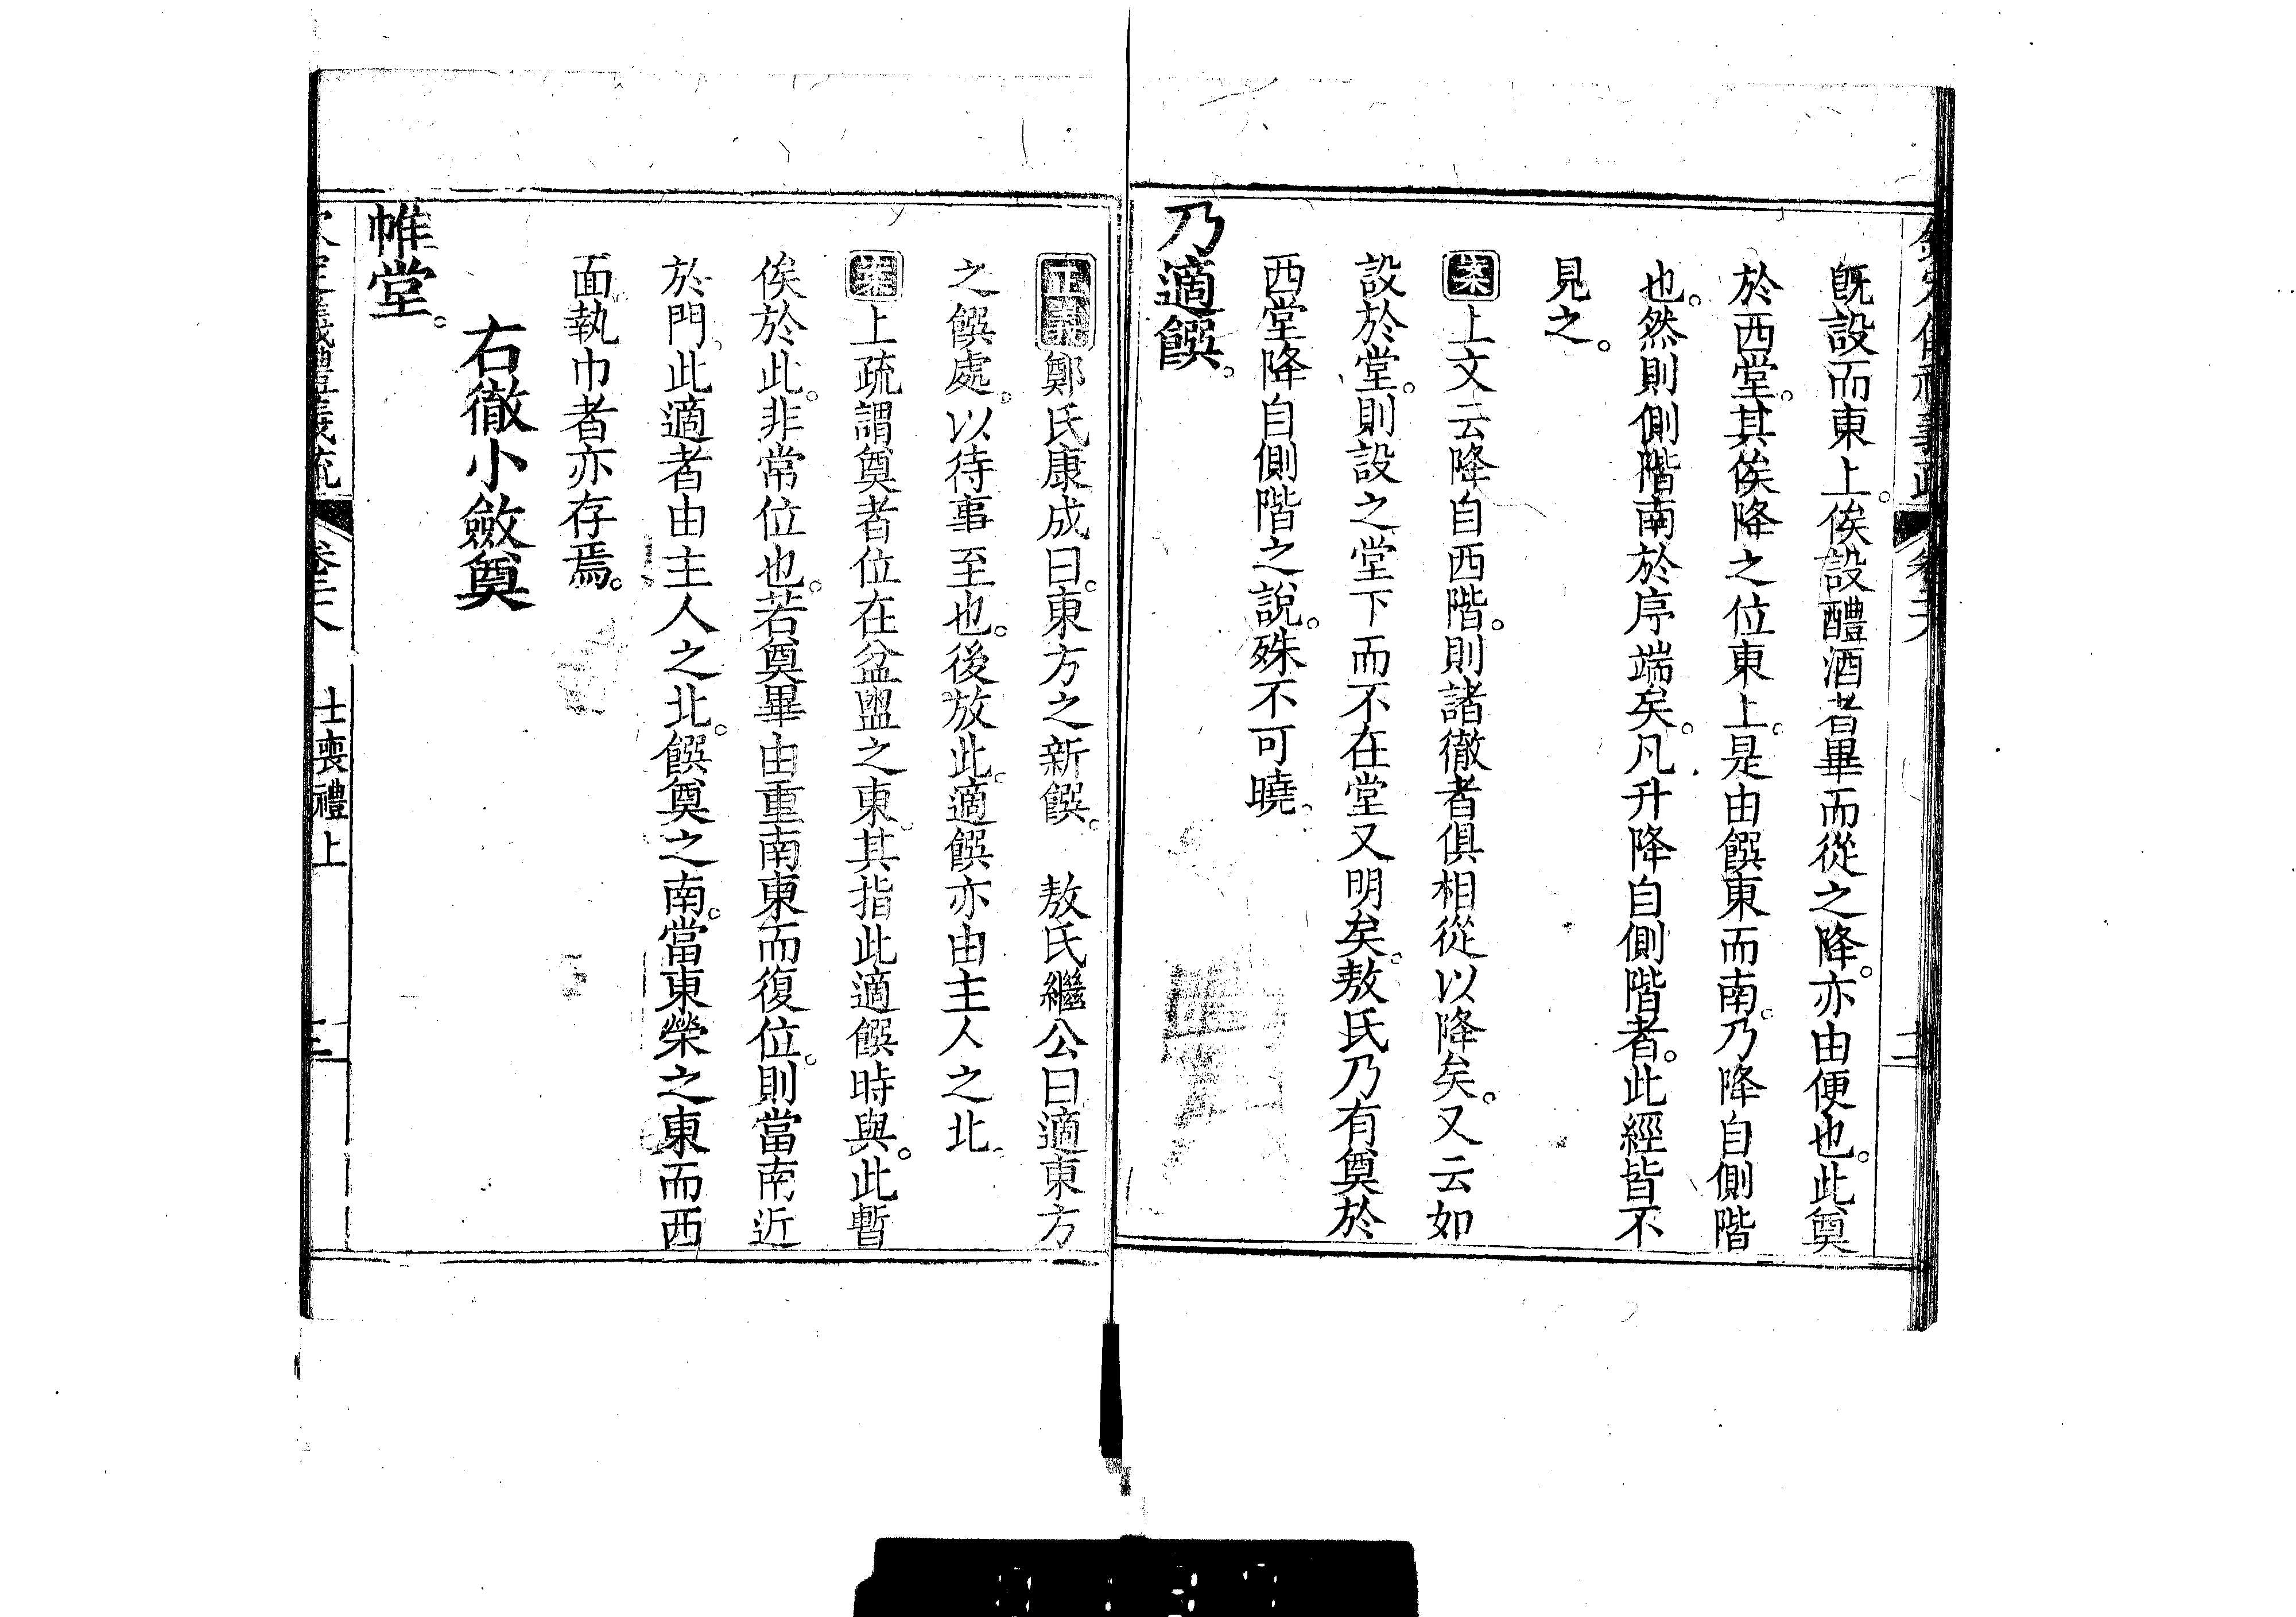 既設而東上。俟設醴酒者畢而從之降。亦由便也。此奠
於西堂。其俟降之位東上。是由饌東而南。乃降自側階
也。然則側階南於序端矣。凡升降自側階者。此經皆不
見之。
案上文云降自西階。則諸徹者俱相從以降矣。又云如
設於堂。則設之堂下而不在堂又明矣。敖氏乃有奠於
西堂降自側階之說。殊不可曉。
乃適饌。
正義鄭氏康成曰。東方之新饌。 敖氏繼公曰適東方
之饌處。以待事至也。後放此。適饌亦由主人之北。
案上疏謂奠者位在盆盥之東。其指此適饌時與。此暫
俟於此。非常位也。若奠畢由重南東而復位。則當南近
於門。此適者由主人之北。饌奠之南。當東榮之東而西
面。執巾者亦存焉。
右徹小斂奠
帷堂。
士喪禮上